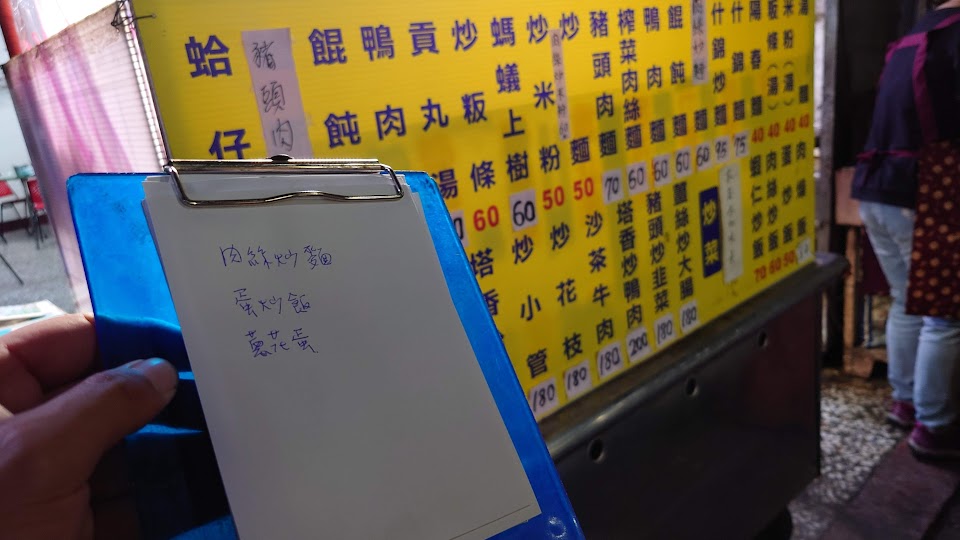 肉絲炒麵
蛋炒飯
蔥花蛋
蛤仔
豬頭肉
餛飩
鴨肉
貢丸湯
炒粄條 60
螞蟻上樹 60
炒米粉 50
炒麵 50
豬頭肉麵 70
榨菜肉絲麵 60
鴨肉麵 60
餛飩麵 60
什錦炒麵
什錦麵 75
陽春麵 40
粄條(湯) 40
米粉(湯) 40
湯麵 40
塔香
炒小管 180
炒花枝 180
沙茶牛肉 180
塔香炒鴨肉 200
豬頭炒韭菜 180
薑絲炒大腸 180
炒菜
蝦仁炒飯 70
肉絲炒飯 60
蛋炒飯 50
肉燥飯